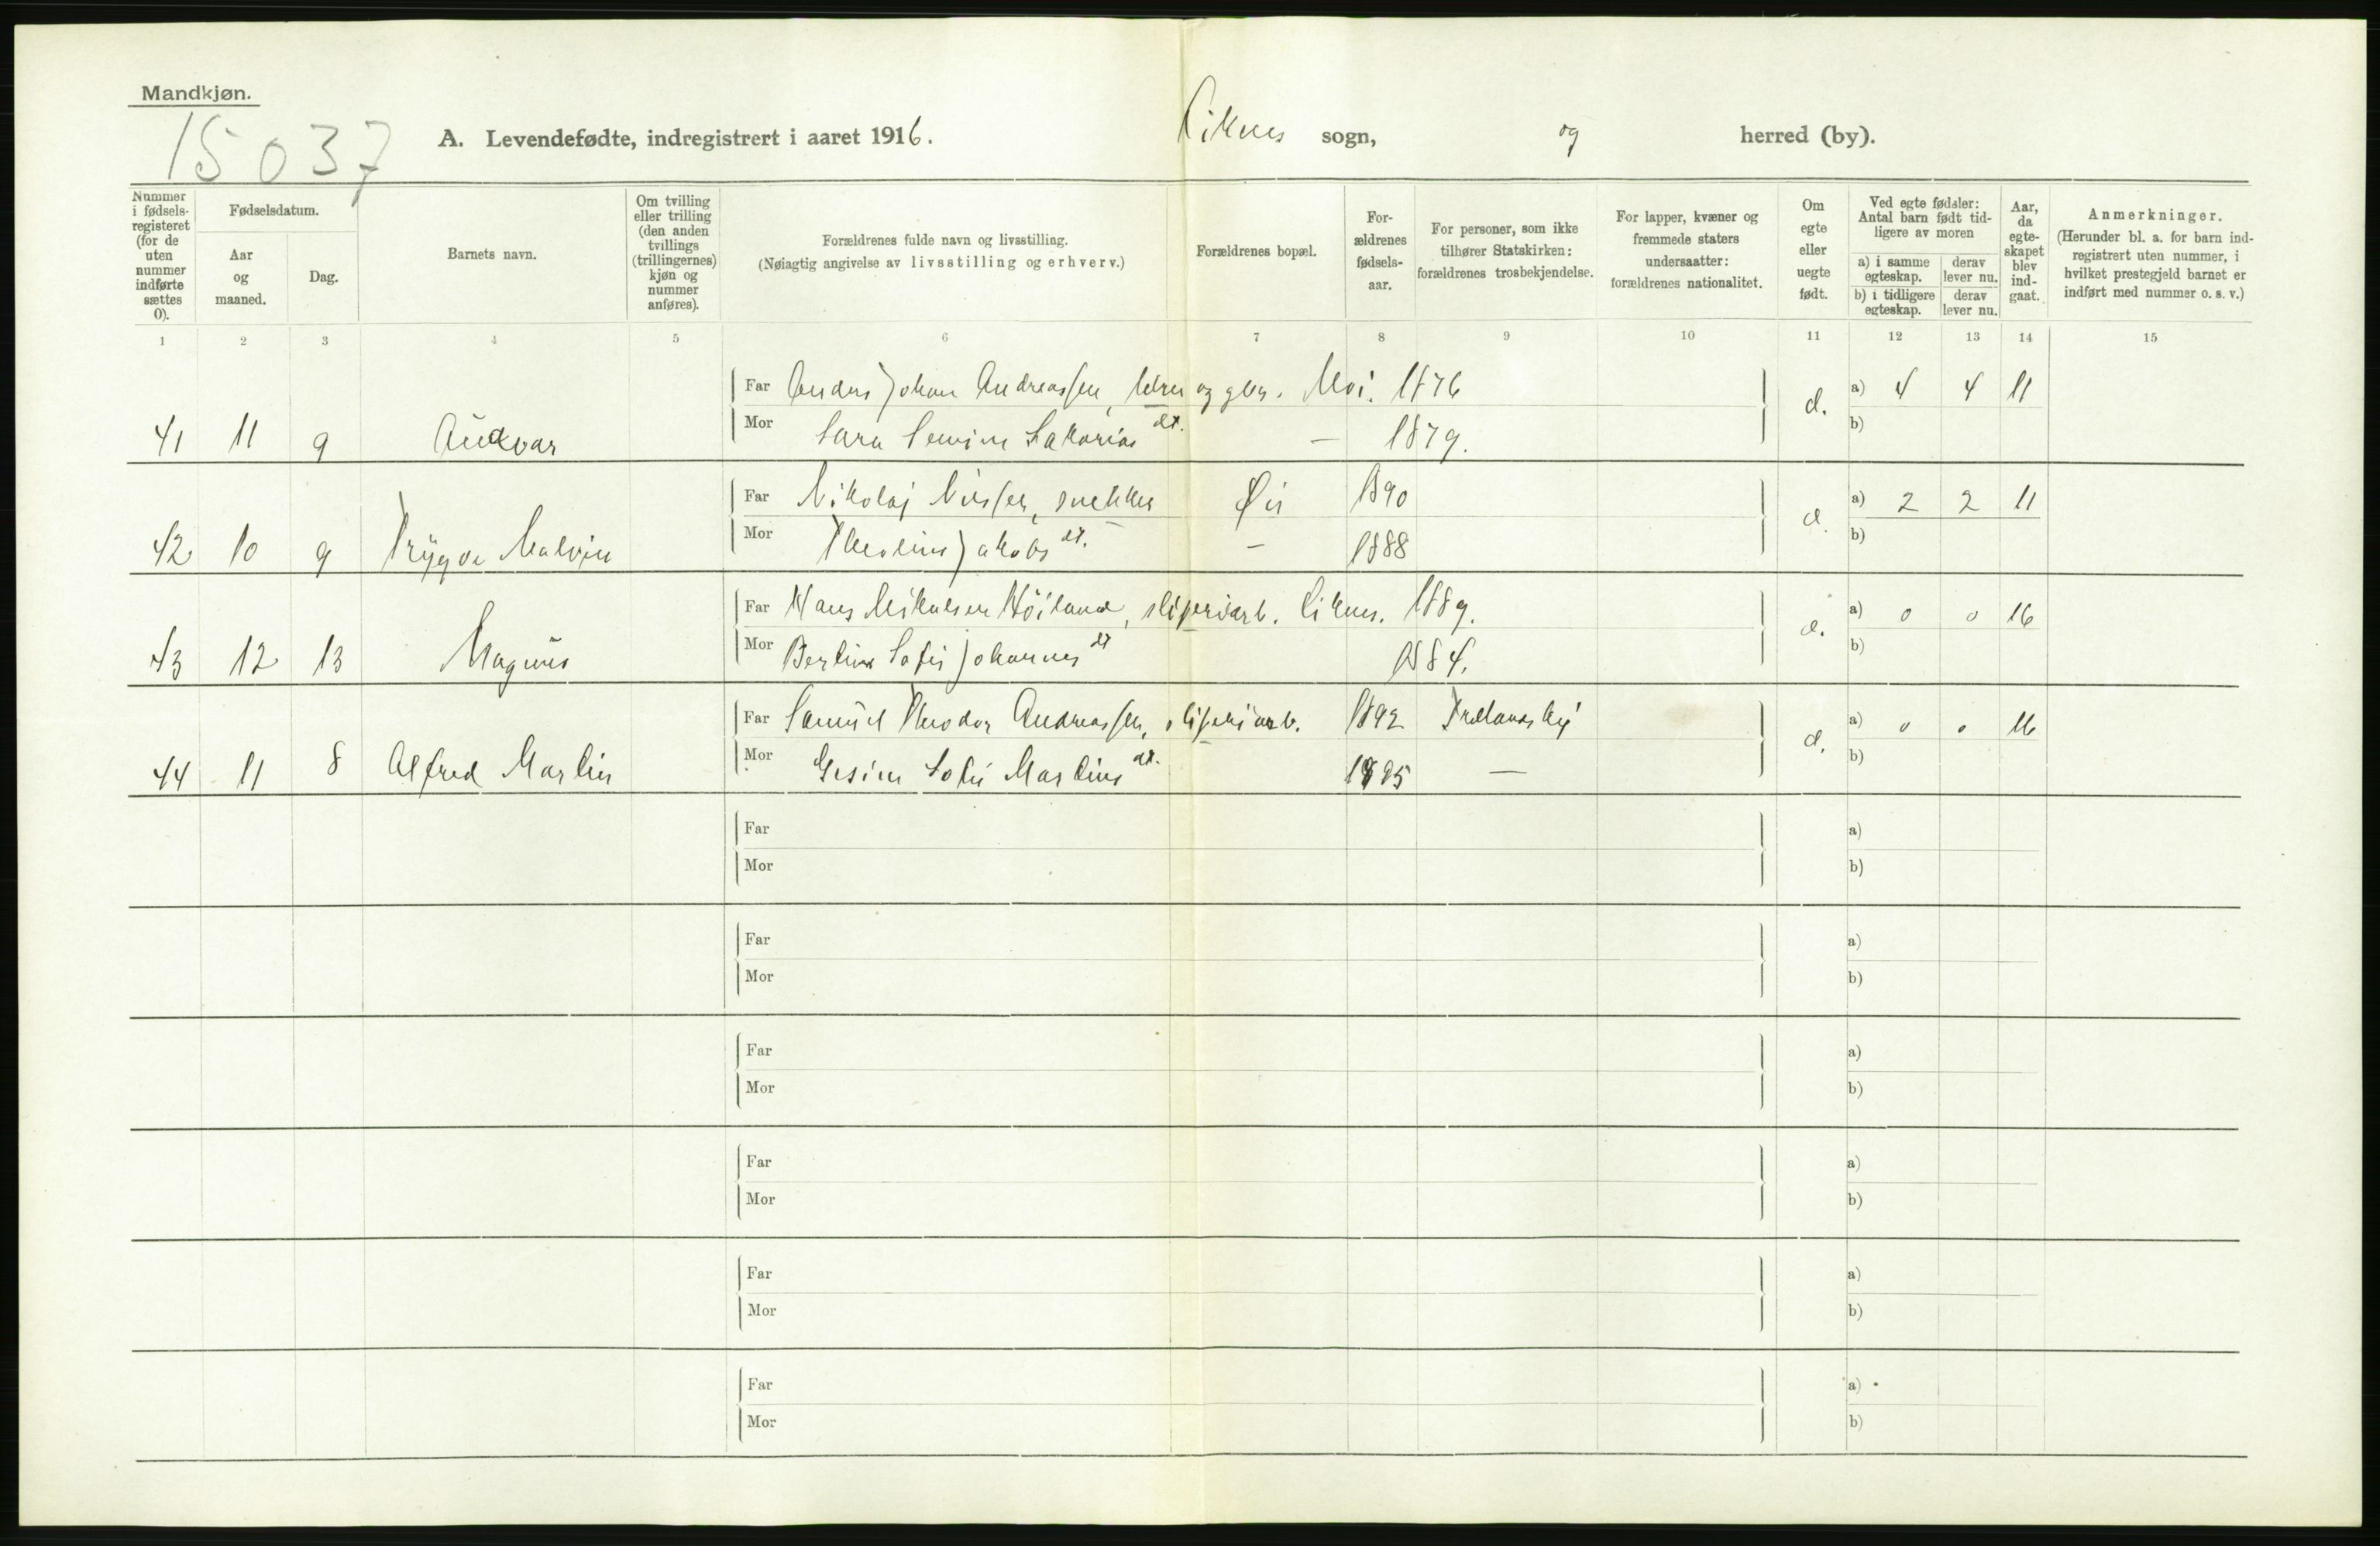 Mandkjøn.
15037
A. Levendefødte, indregistrert i aaret 1916. Liknes sogn, og herred (by).
Nummer i fødsels-registeret (for de uten nummer indførte sættes 0).
Fødselsdatum.
Aar og maaned.
Dag.
Barnets navn.
Om tvilling eller trilling (den anden tvillings (trillingernes) kjøn og nummer anføres).
Forældrenes fulde navn og livsstilling.
(Nøiagtig angivelse av livsstilling og erhverv.)
Forældrenes bopæl.
For-ældrenes fødsels-aar.
For personer, som ikke tilhører Statskirken: forældrenes trosbekjendelse.
For lapper, kvæner og fremmede staters undersaatter: forældrenes nationalitet.
Om egte eller uegte født.
Ved egte fødsler: Antal barn født tid-ligere av moren
a) i samme egteskap. derav lever nu.
b) i tidligere egteskap. derav lever nu.
Aar, da egte-skapet blev ind-gaat.
Anmerkninger.
(Herunder bl. a. for barn ind-registrert uten nummer, i hvilket prestegjeld barnet er indført med nummer o. s. v.)
1 2 3 4 5 6 7 8 9 10 11 12 13 14 15
Far Anders Johan Andreassen, og gbr. Moi. 1876 a) 4 4 11
41 11 9 Audvar Mor Sara Sakarias dt. — 1879. b)
Far Nikolaj Nilssen, snekker Øie 1890 a) 2 2 11
42 10 9 Trygve Malvin Mor Jakobs dt. — 1888 b)
Far Hans Mikalsen Höiland, sliperiarb. Liknes. 1889. a) 0 0 16
43 12 13 Magnus Mor Berlina Sofie Johannes dt 1884. b)
Far Samuel Theodor Andreassen, sliperiarb. 1892 a) 0 0 16
44 11 8 Alfred Martin Mor Gesine Sofie Martins dt. 1895 — b)
Far a)
Mor b)
Far a)
Mor b)
Far a)
Mor b)
Far a)
Mor b)
Far a)
Mor b)
Far a)
Mor b)